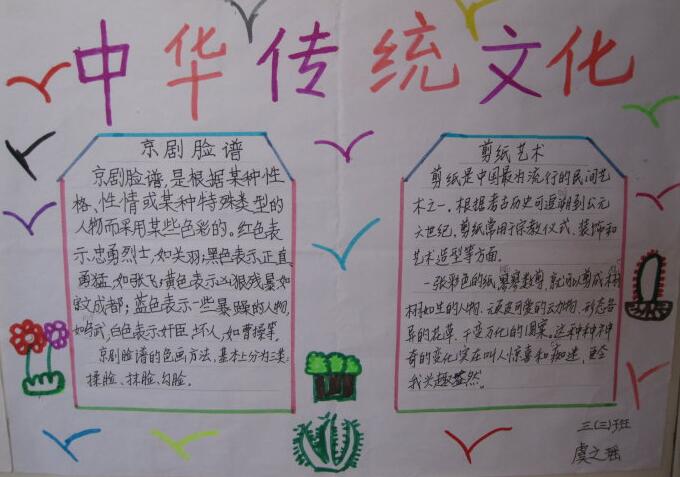 中华传统文化
京剧脸谱
京剧脸谱,是根据某种性
格、性情或某种特殊类型的
人物而采用某些色彩的。红色表
示忠勇烈士,如关羽;黑色表示正直、
勇猛,如张飞;黄色表示凶狠残暴如
宇文成都;蓝色表示一些暴躁的人物,
如马武,白色表示奸臣、坏人,如曹操等。
京剧脸谱的色画方法,基本上分为三类:
揉脸、抹脸、勾脸。
剪纸艺术
剪纸是中国最为流行的民间艺
术之一,根据考古历史可追溯到公元
六世纪。剪纸常用于宗教仪式、装饰和
艺术造型等方面。
一张彩色的纸,寥寥数剪,就可以剪成栩
栩如生的人物、可爱的动物、形态各
异的花草、千变万化的图案。这种种神
奇的变化实在叫人惊喜和,更令
我兴趣盎然。
三(三)班
虞之瑶